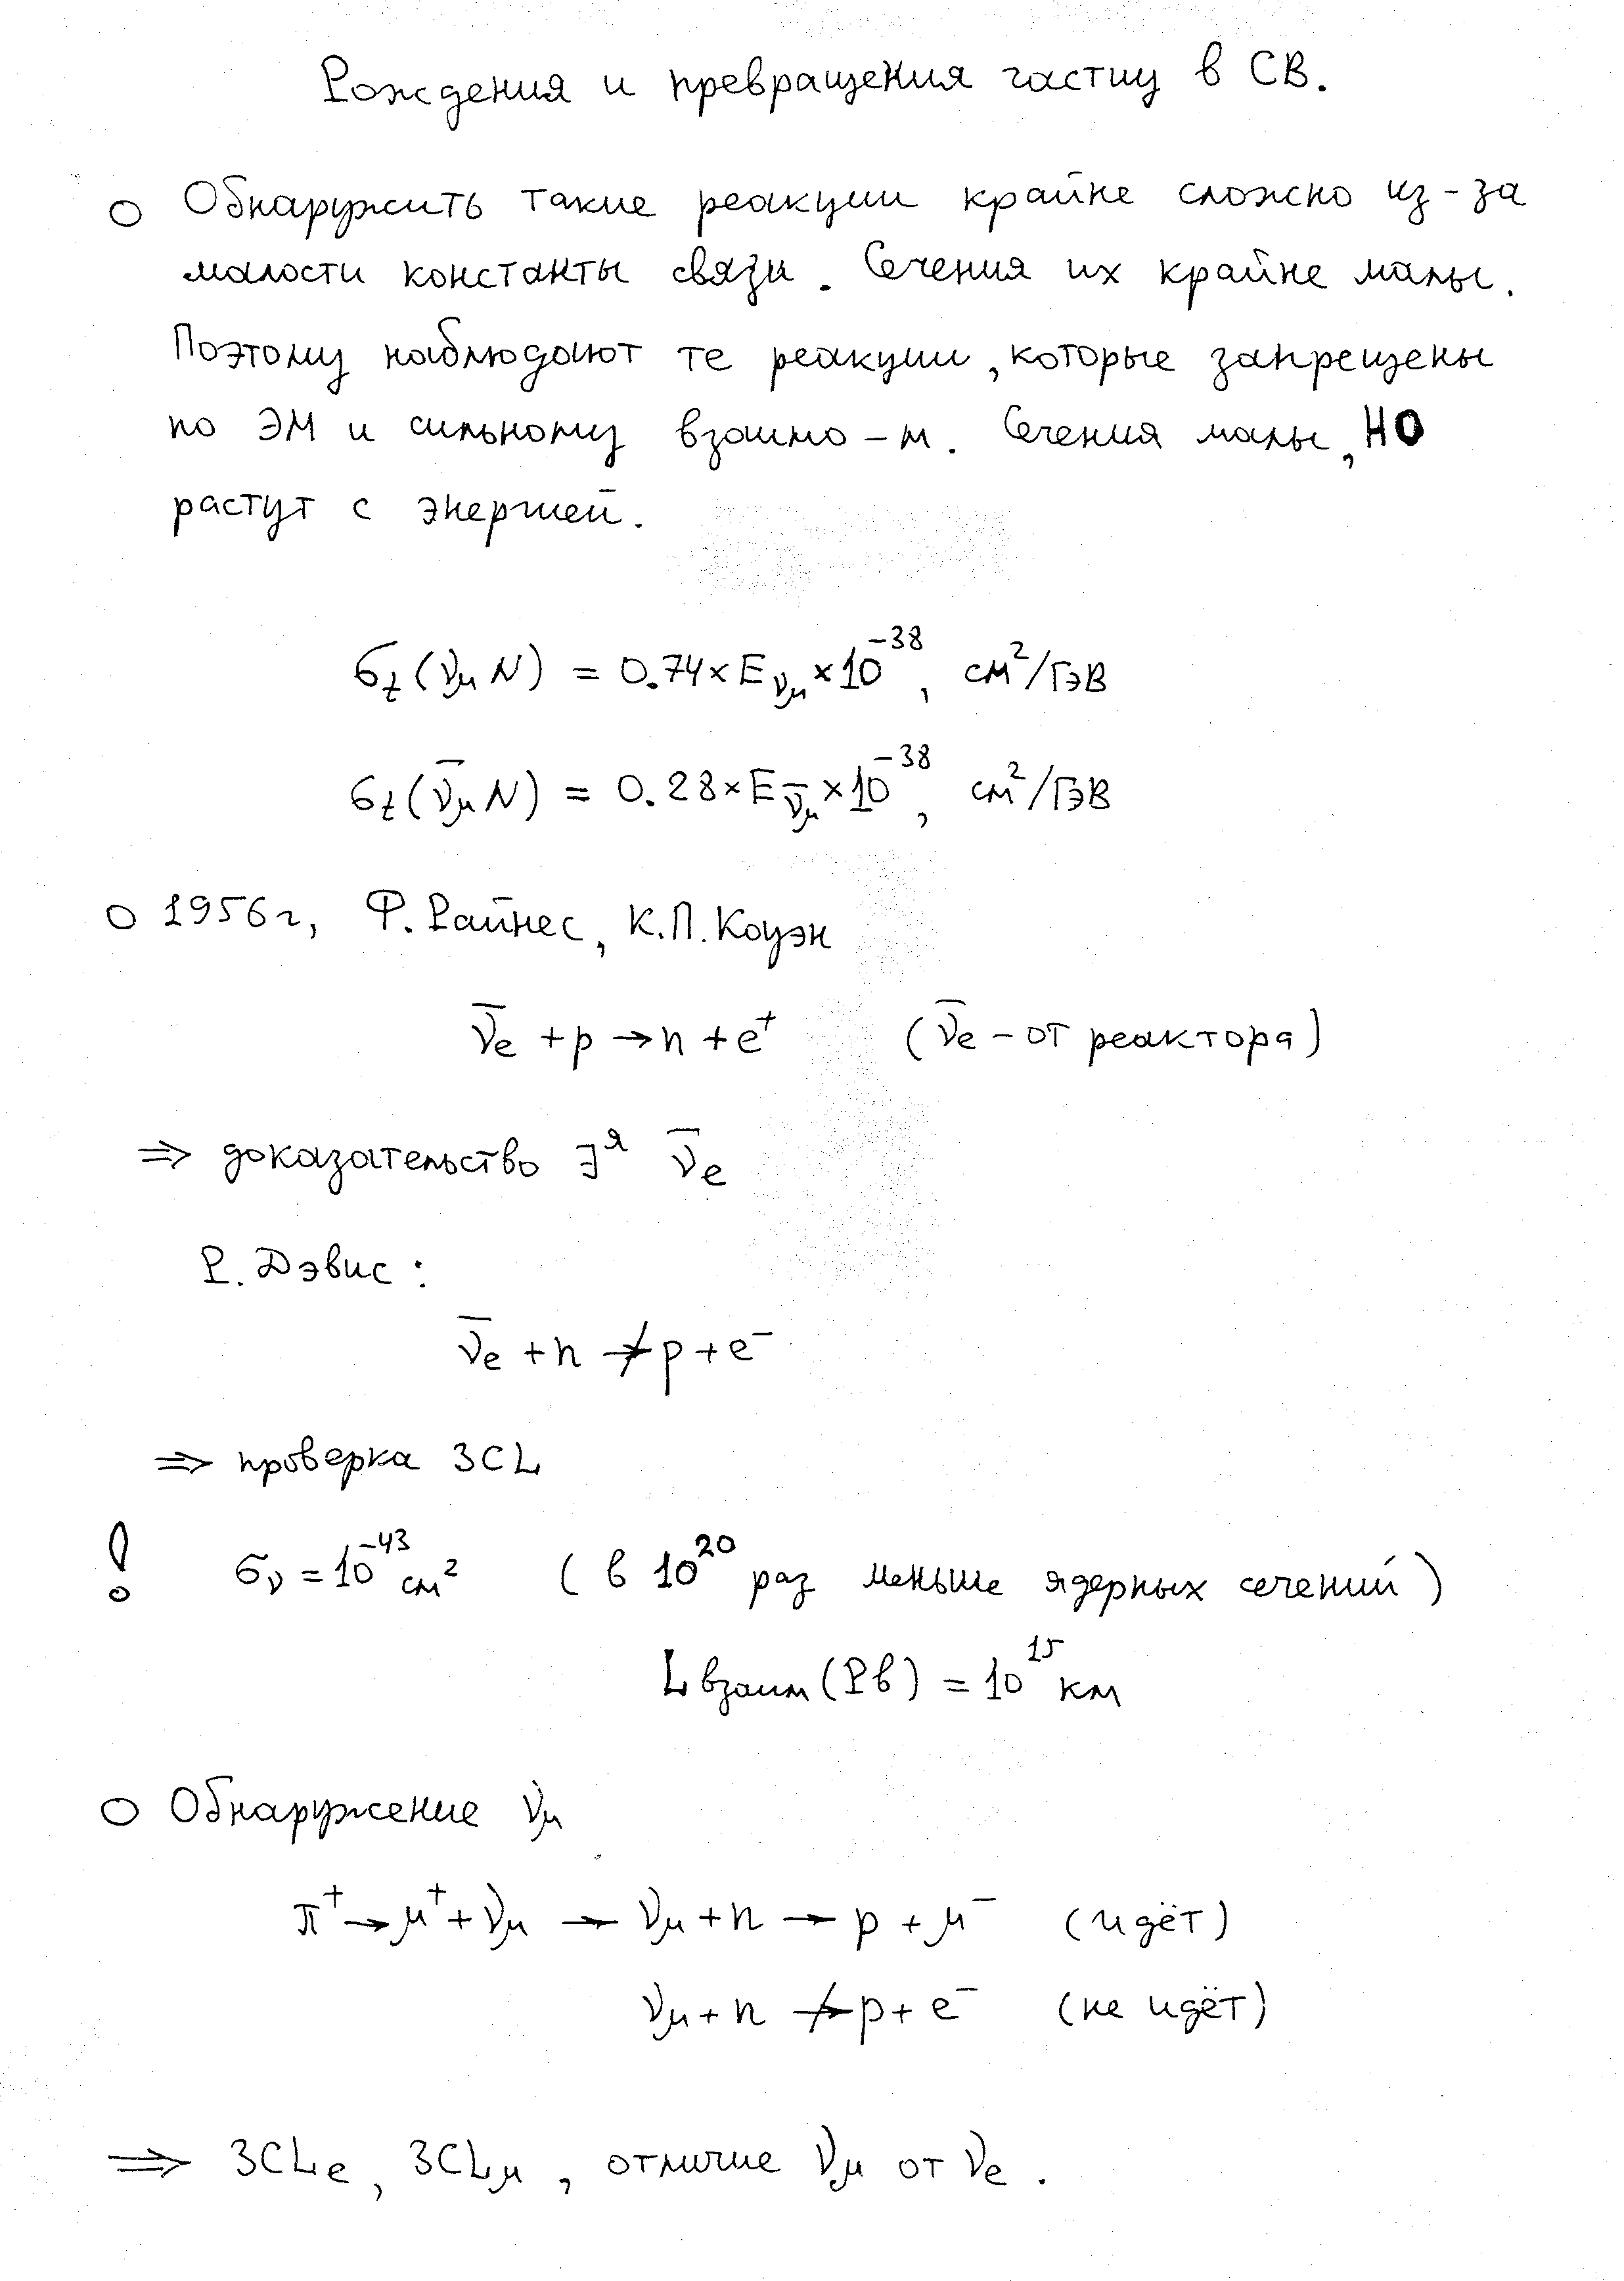 Рождения и превращения частиц в СВ.
○ Обнаружить такие реакции крайне сложно из-за
малости константы связи. Сечения их крайне малы.
Поэтому наблюдают те реакции, которые запрещены
по ЭМ и сильному взаимо-м. Сечения малы, НО
растут с энергией.
σₜ(νμN) = 0.74×Eνμ×10⁻³⁸, см²/ГэВ
σₜ(ν̄μN) = 0.28×Eν̄μ×10⁻³⁸, см²/ГэВ
○ 1956г, Ф. Райнес, К.Л. Коуэн
ν̄e + p → n + e⁺ (ν̄e – от реактора)
⇒ доказательство ∃ᴽ ν̄e
Р. Дэвис:
ν̄e + n ↛ p + e⁻
⇒ проверка ЗСL
! σν = 10⁻⁴³ см² (в 10²⁰ раз меньше ядерных сечений)
Lвзаим(Pb) = 10¹⁵ км
○ Обнаружение νμ
π⁺ → μ⁺ + νμ → νμ + n → p + μ⁻ (идёт)
νμ + n ↛ p + e⁻ (не идёт)
⇒ ЗСLe, ЗСLμ, отличие νμ от νe.